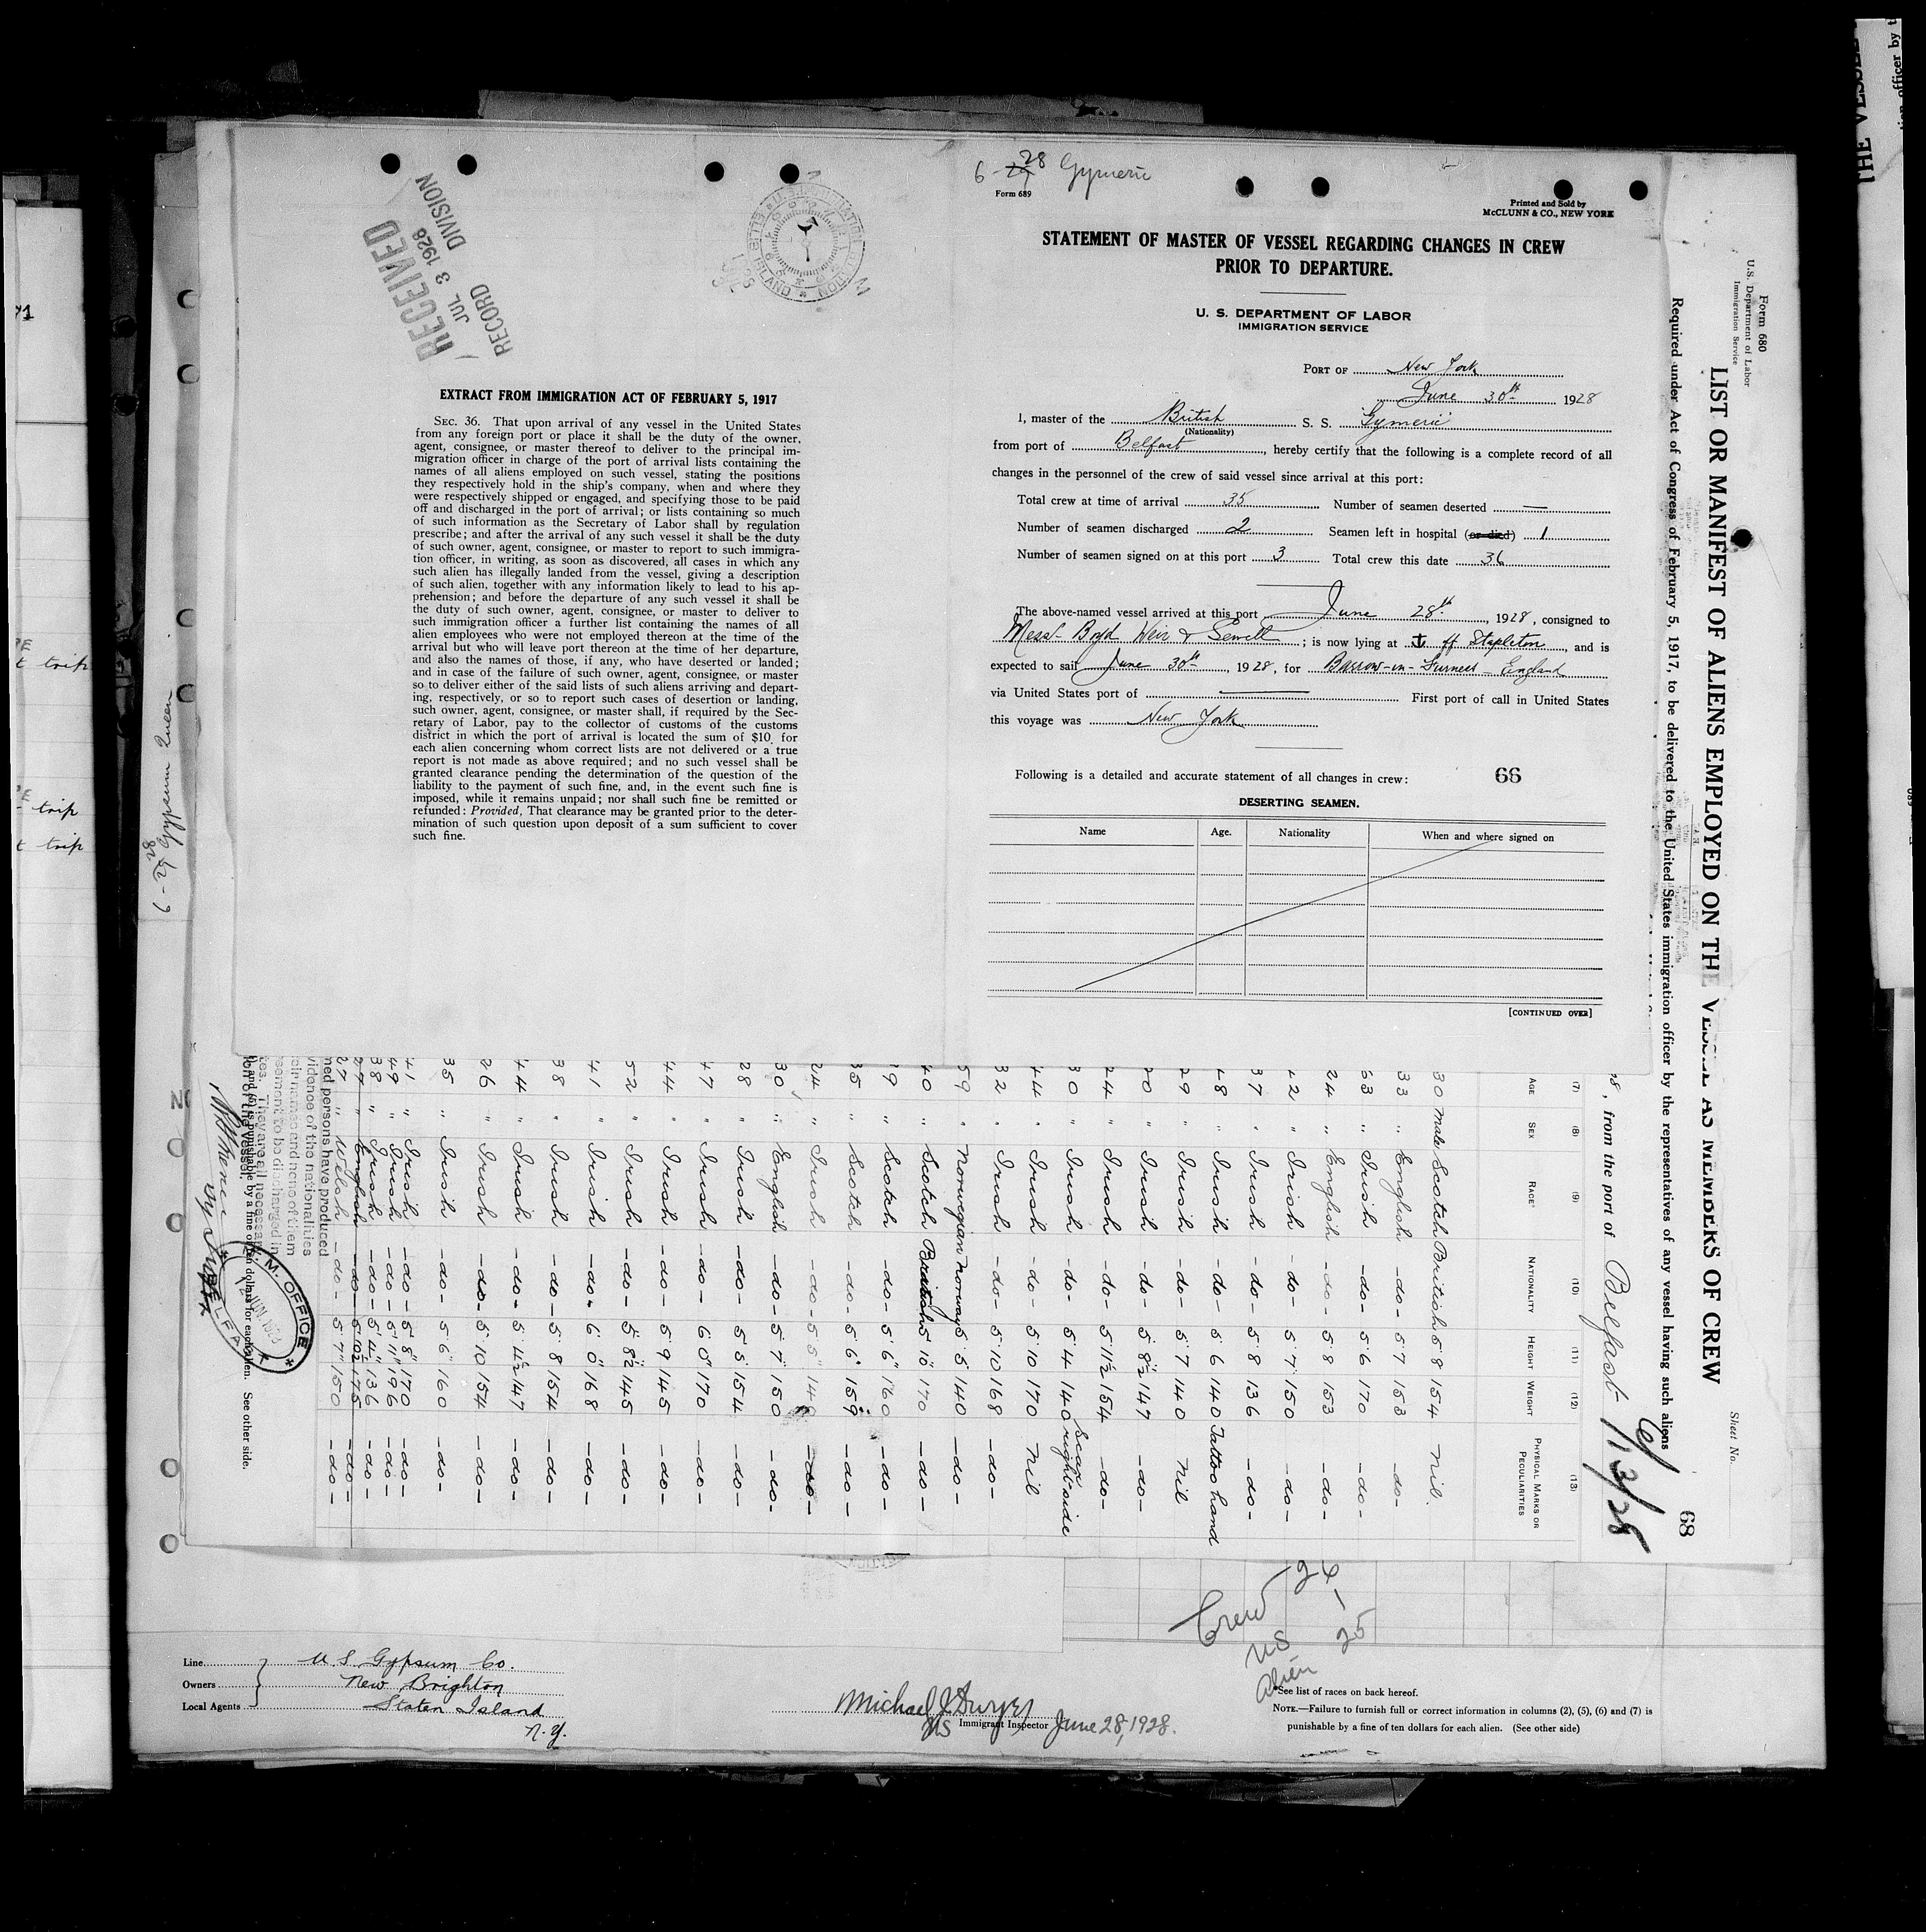 RECEIVED
JUL 3 1928
RECORD DIVISION
EXTRACT FROM IMMIGRATION ACT OF FEBRUARY 5, 1917
SEC. 36. That upon arrival of any vessel in the United States
from any foreign port or place it shall be the duty of the owner,
agent, consignee, or master thereof to deliver to the principal im-
migration officer in charge of the port of arrival lists containing the
names of all aliens employed on such vessel, stating the positions
they respectively hold in the ship's company, when and where they
were respectively shipped or engaged, and specifying those to be paid
off and discharged in the port of arrival; or lists containing so much
of such information as the Secretary of Labor shall by regulation
prescribe; and after the arrival of any such vessel it shall be the duty
of such owner, agent, consignee, or master to report to such immigra-
tion officer, in writing, as soon as discovered, all cases in which any
such alien has illegally landed from the vessel, giving a description
of such alien, together with any information likely to lead to his ap-
prehension; and before the departure of any such vessel it shall be
the duty of such owner, agent, consignee, or master to deliver to
such immigration officer a further list containing the names of all
alien employees who were not employed thereon at the time of the
arrival but who will leave port thereon at the time of her departure,
and also the names of those, if any, who have deserted or landed;
and in case of the failure of such owner, agent, consignee, or master
so to deliver either of the said lists of such aliens arriving and depart-
ing, respectively, or so to report such cases of desertion or landing,
such owner, agent, consignee, or master shall, if required by the Sec-
retary of Labor, pay to the collector of customs of the customs
district in which the port of arrival is located the sum of $10 for
each alien concerning whom correct lists are not delivered or a true
report is not made as above required; and no such vessel shall be
granted clearance pending the determination of the question of the
liability to the payment of such fine, and, in the event such fine is
imposed, while it remains unpaid; nor shall such fine be remitted or
refunded: Provided, That clearance may be granted prior to the deter-
mination of such question upon deposit of a sum sufficient to cover
such fine.
6-28 Gymeric
Form 689
Printed and Sold by
McCLUNN & CO., NEW YORK
STATEMENT OF MASTER OF VESSEL REGARDING CHANGES IN CREW
PRIOR TO DEPARTURE.
U. S. DEPARTMENT OF LABOR
IMMIGRATION SERVICE
PORT OF New York
June 30th 1928
I, master of the British S. S. Gymeric
(Nationality)
from port of Belfast, hereby certify that the following is a complete record of all
changes in the personnel of the crew of said vessel since arrival at this port:
Total crew at time of arrival 35 Number of seamen deserted —
Number of seamen discharged 2 Seamen left in hospital (or died) 1
Number of seamen signed on at this port 3 Total crew this date 36
The above-named vessel arrived at this port June 28th, 1928, consigned to
Messrs Boyd Weir & Sewell; is now lying at off Stapleton, and is
expected to sail June 30th, 1928, for Barrow-in-Furness England
via United States port of — First port of call in United States
this voyage was New York
Following is a detailed and accurate statement of all changes in crew: 66
DESERTING SEAMEN.
Name Age. Nationality When and where signed on
[CONTINUED OVER]
Form 680
U.S. Department of Labor
Immigration Service
LIST OR MANIFEST OF ALIENS EMPLOYED ON THE VESSEL AS MEMBERS OF CREW
Required under Act of Congress of February 5, 1917, to be delivered to the United States immigration officer by the representatives of any vessel having such aliens
Sheet No.
68
, from the port of Belfast
(7) (8) (9) (10) (11) (12) (13)
AGE SEX RACE* NATIONALITY HEIGHT WEIGHT PHYSICAL MARKS OR PECULIARITIES
30 Male Scotch British 5 8 154 Nil.
33 " English -do- 5 7 153 -do-
63 " Irish -do- 5 6 170 -do-
24 " English -do- 5 8 153 -do-
42 " Irish -do- 5 7 150 -do-
37 " Irish -do- 5 8 136 -do-
48 " Irish -do- 5 6 140 Tattoo hand
29 " Irish -do- 5 7 140 Nil
20 " Irish -do- 5 8½ 147 -do-
24 " Irish -do- 5 11½ 154 -do-
30 " Irish -do- 5 4 140 Scar right side
44 " Irish -do- 5 10 170 Nil
32 " Irish -do- 5 10 168 -do-
59 " Norwegian Norway 5 5 140 -do-
40 " Scotch British 5 10 170 -do-
" Scotch -do- 5 6 160 -do-
" Scotch -do- 5 6 159 -do-
24 " Irish -do- 5 5 -do-
30 " English -do- 5 7 150 -do-
28 " Irish -do- 5 5 154 -do-
47 " Irish -do- 6 0 170 -do-
44 " Irish -do- 5 9 145 -do-
52 " Irish -do- 5 8½ 145 -do-
41 " Irish -do- 6 0 168 -do-
38 " Irish -do- 5 8 154 -do-
44 " Irish -do- 5 4½ 147 -do-
26 " Irish -do- 5 10 154 -do-
35 " Irish -do- 5 6 160 -do-
41 " Irish -do- 5 8 170 -do-
49 " Irish -do- 5 11 196 -do-
38 " Irish -do- 5 4½ 136 -do-
27 " English -do- 5 10½ 175 -do-
27 " Welsh -do- 5 7 150 -do-
6-28 Gypsum Queen
Crew 26
US 1
Alien 25
Line U.S. Gypsum Co.
Owners New Brighton
Local Agents Staten Island
N.Y.
Michael J Dwyer
US Immigrant Inspector June 28, 1928.
*See list of races on back hereof.
NOTE.—Failure to furnish full or correct information in columns (2), (5), (6) and (7) is
punishable by a fine of ten dollars for each alien. (See other side)